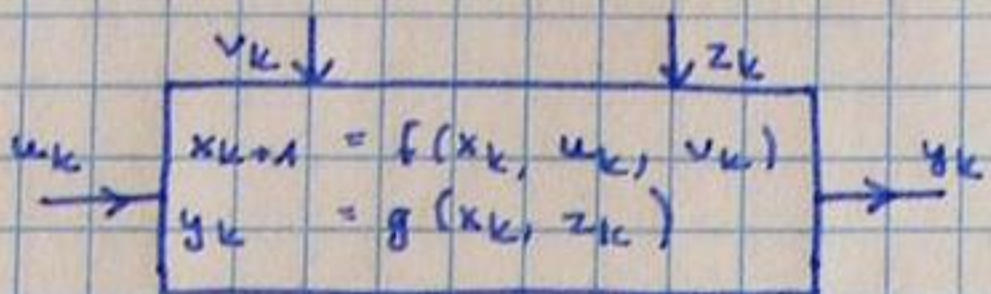 vk zk
uk xk+1 = f(xk, uk, vk) yk
yk = g(xk, zk)